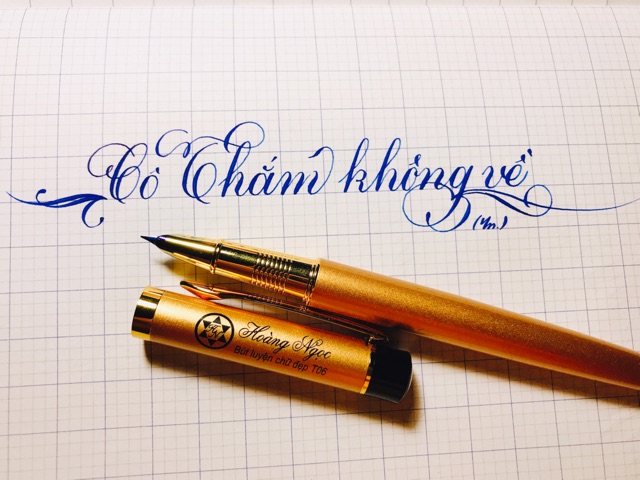 Cô Thắm không về
(Yn.)
Hoàng Ngọc
Bút luyện chữ đẹp T06